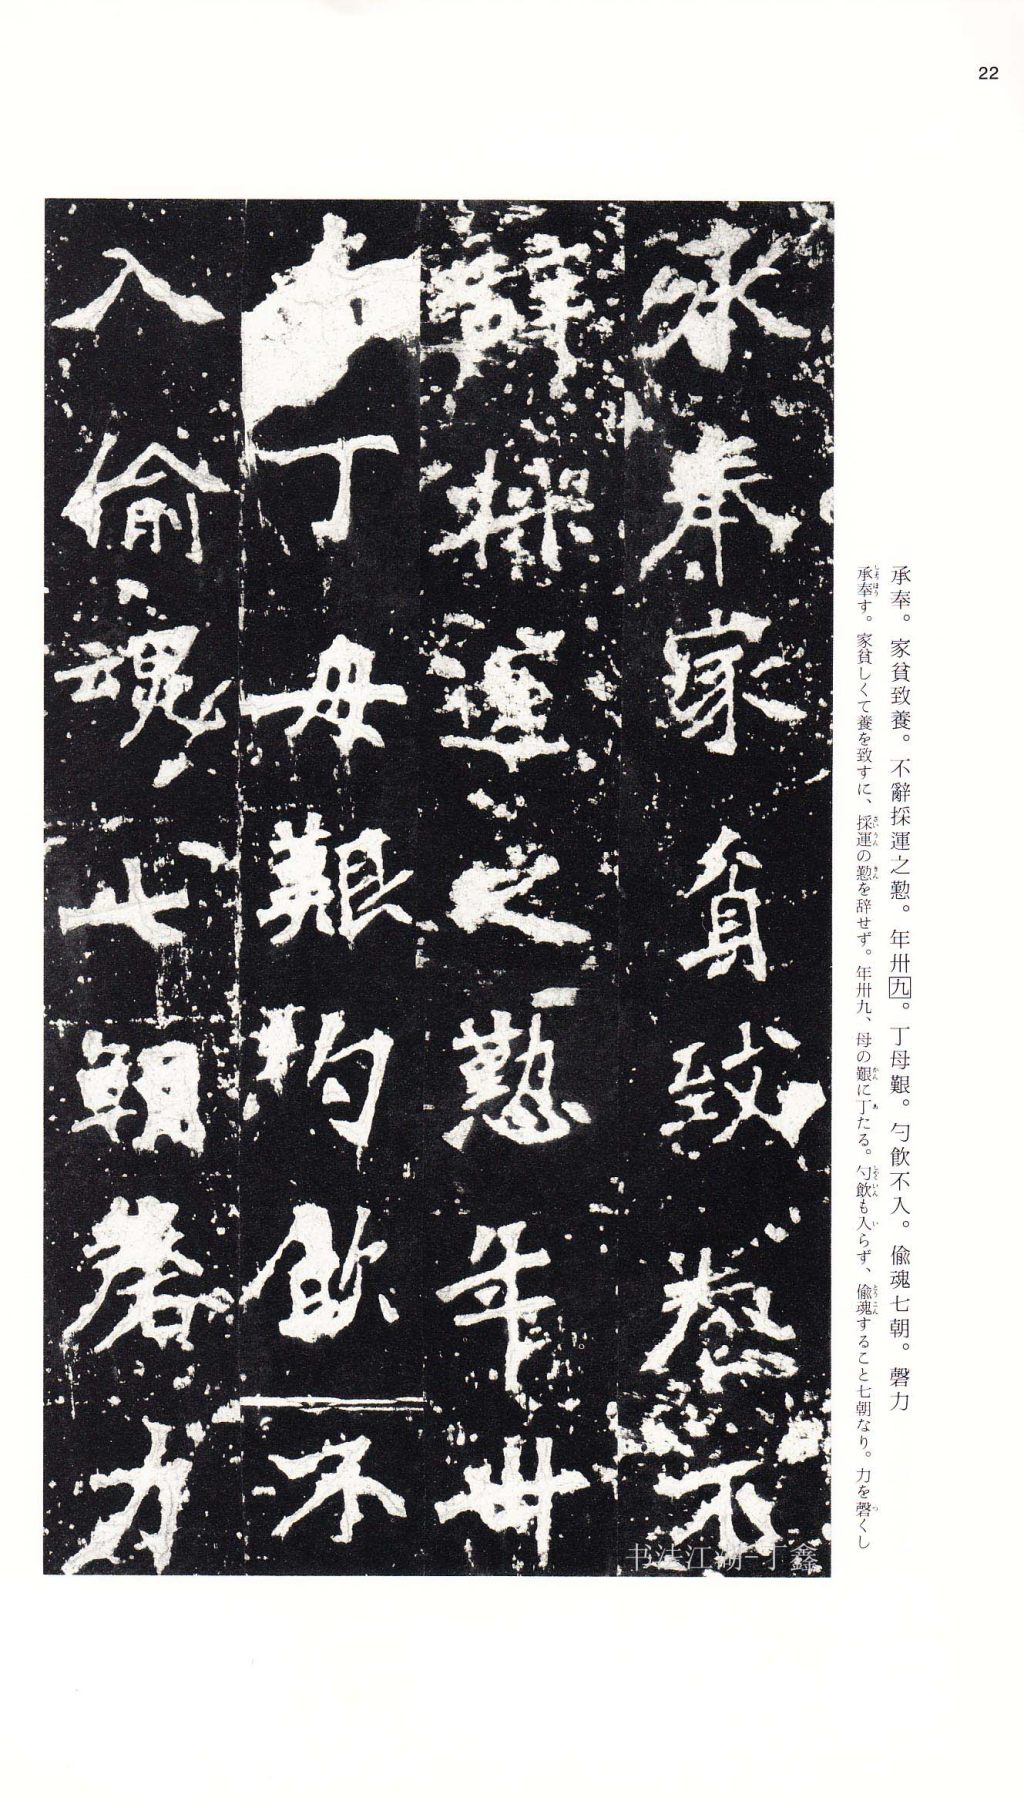 22
承奉。家貧致養。不辭採運之懃。年卅九。丁母艱。勺飮不入。偸魂七朝。磬力
承奉す。家貧しくて養を致すに、採運の懃を辞せず。年卅九、母の艱に丁たる。勺飮も入らず、偸魂すること七朝なり。力を磬くし
承奉家貧致養不
辭採運之懃年卅
丁母艱勺飮不
入偸魂七朝磬力
书法江湖-丁鑫